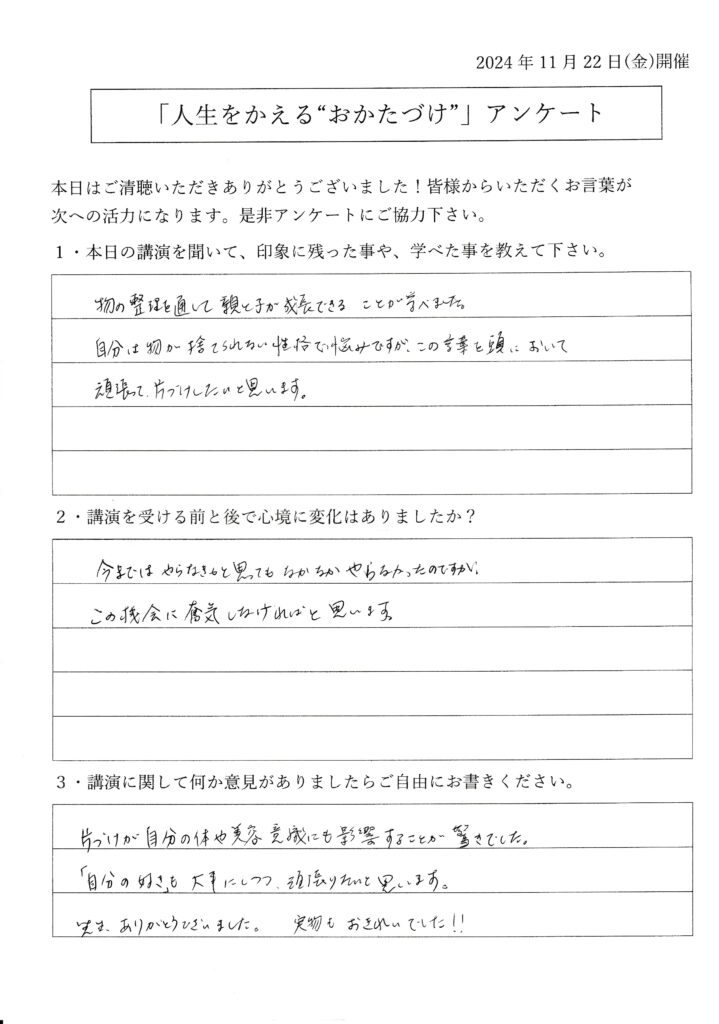 2024年11月22日(金)開催
「人生をかえる“おかたづけ”」アンケート
本日はご清聴いただきありがとうございました！皆様からいただくお言葉が
次への活力になります。是非アンケートにご協力下さい。
１・本日の講演を聞いて、印象に残った事や、学べた事を教えて下さい。
物の整理を通して親と子が成長できることが学べました。
自分は物が捨てられない性格で悩みですが、この言葉を頭において
頑張って、片づけしたいと思います。
２・講演を受ける前と後で心境に変化はありましたか？
今まではやらなきゃと思ってもなかなかやらなかったのですが、
この機会に奮気しなければと思います。
３・講演に関して何か意見がありましたらご自由にお書きください。
片づけが自分の体や美容意識にも影響することが驚きでした。
「自分の好き」も大事にしつつ、頑張りたいと思います。
先生、ありがとうございました。 実物もおきれいでした!!